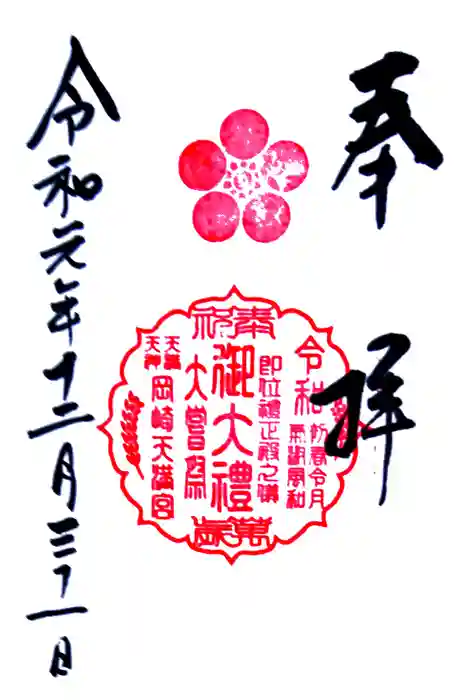 奉拝
奉祝
令和
初春令月
気淑風和
即位禮正殿之儀
御大禮
大嘗祭
天満
天神
岡崎天満宮
萬歳
令和元年十二月三十一日